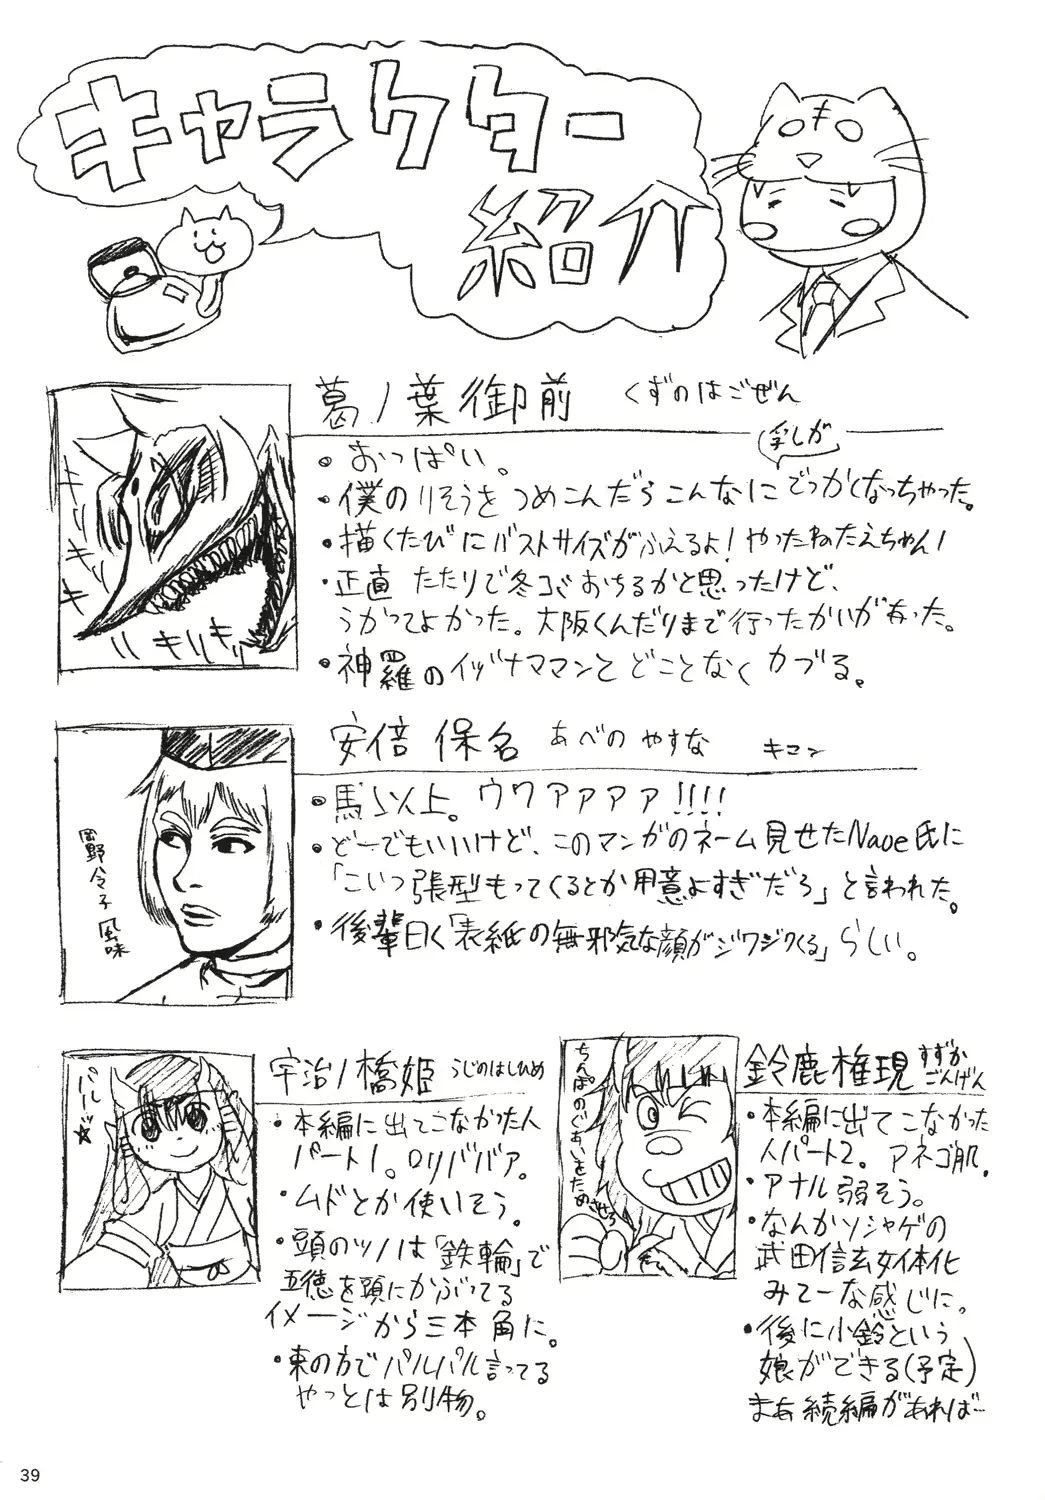 キャラクター
紹介
葛ノ葉御前 くずのはごぜん
・おっぱい。
乳しが
・僕のりそうをつめこんだらこんなにでっかくなっちゃった。
・描くたびにバストサイズがふえるよ!やったねたえちゃん!
・正直たたりで冬コミおちるかと思ったけど、
うかってよかった。大阪くんだりまで行ったかいがあった。
・神羅のイヅナママンとどことなくカブる。
安倍 保名 あべの やすな キコン
岡野令子風味
・馬ら以上。ウワァァァァ!!!!
・どーでもいいけど、このマンガのネーム見せたNaoe氏に
「こいつ張型もってくるとか用意よすぎだろ」と言われた。
・後輩曰く「表紙の無邪気な顔がジワジワくる」らしい。
パルッ☆
宇治ノ橋姫 うじのはしひめ
・本編に出てこなかった人
パート1。ロリババア。
・ムドとか使いそう。
・頭のツノは「鉄輪」で
五徳を頭にかぶってる
イメージから三本角に。
・東の方でパルパル言ってる
やつとは別物。
ちんぽのぐあいをためさせろ
鈴鹿権現 すずかごんげん
・本編に出てこなかった
人パート2。アネゴ肌。
・アナル弱そう。
・なんかソシャゲの
武田信玄女体化
みてーな感じに。
・後に小鈴という
娘ができる(予定)
まあ続編があれば…
39